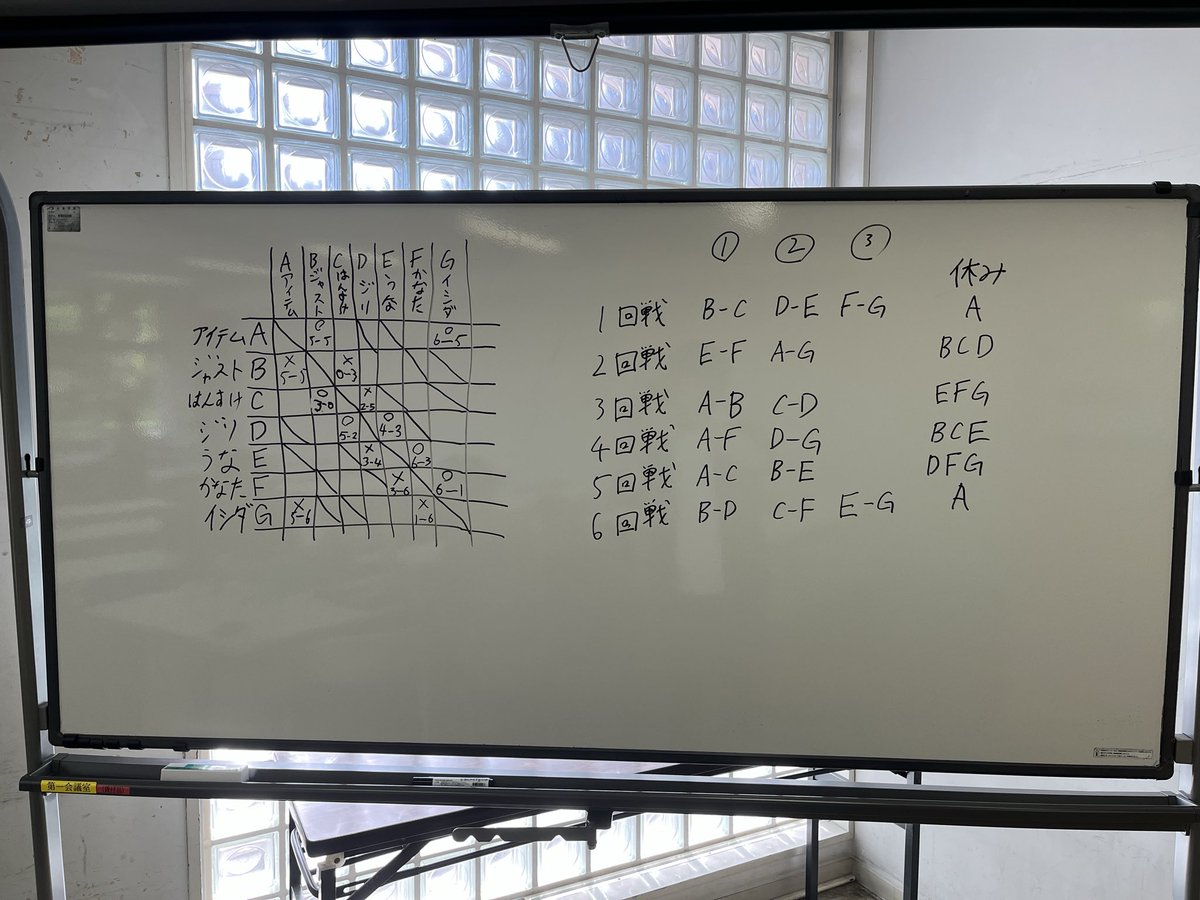 A アイテム B ジャスト C はんすけ D ジリ E うな F かなた G イシダ
アイテム A ○ 5-5 ○ 6-5
ジャスト B × 5-5 × 0-3
はんすけ C ○ 3-0 × 2-5
ジリ D ○ 5-2 ○ 4-3
うな E × 3-4 ○ 6-3
かなた F × 3-6 ○ 6-1
イシダ G × 5-6 × 1-6
① ② ③ 休み
1回戦 B-C D-E F-G A
2回戦 E-F A-G BCD
3回戦 A-B C-D EFG
4回戦 A-F D-G BCE
5回戦 A-C B-E DFG
6回戦 B-D C-F E-G A
第一会議室